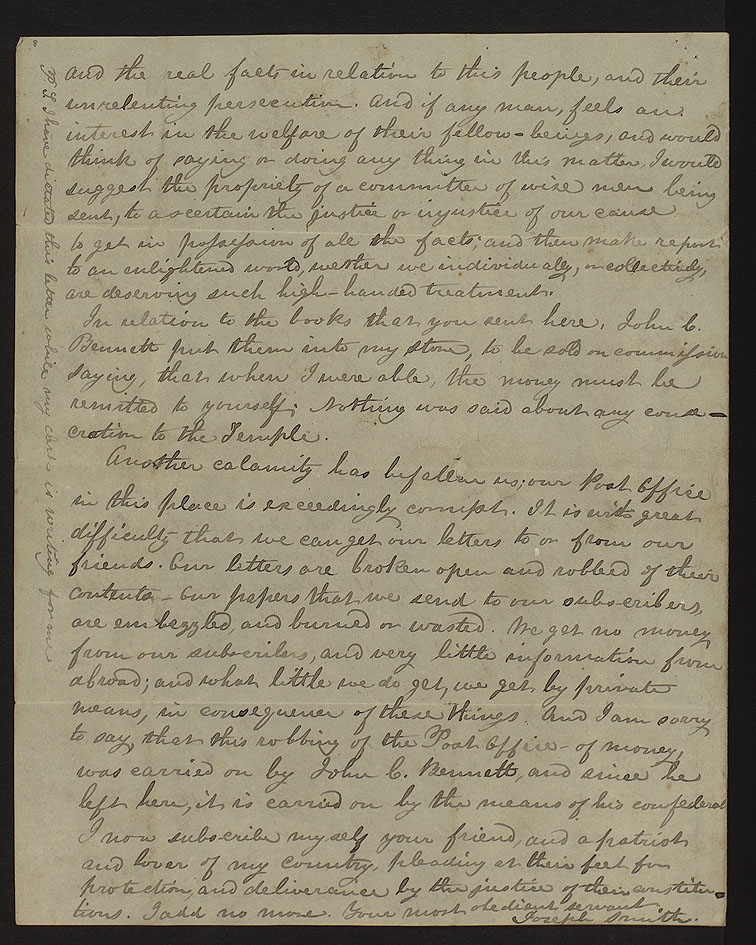 and the real facts in relation to this people, and their
unrelenting persecution. And if any man, feels an
interest in the welfare of their fellow-beings, and would
think of saying or doing any thing in this matter, I would
suggest the propriety of a committee of wise men being
sent, to ascertain the justice or injustice of our cause
to get in possession of all the facts; and then make report
to an enlightened world, wether we individually, or collectively,
are deserving such high-handed treatment.
In relation to the books that you sent here. John C.
Bennett put them into my store, to be sold on commission
saying, that when I were able, the money must be
remitted to yourself; Nothing was said about any conse-
cration to the Temple.
Another calamity has befallen us; our Post Office
in this place is exceedingly corrupt. It is with great
difficulty that we can get our letters to or from our
friends. Our letters are broken open and robbed of their
contents - Our papers that we send to our subscribers,
are embezzled, and burned or wasted. We get no money
from our subscribers, and very little information from
abroad; and what little we do get, we get by private
means, in consequence of these things. And I am sorry
to say, that this robbing of the Post Office - of money,
was carried on by John C. Bennett, and since he
left here, it is carried on by the means of his confederates
I now subscribe myself your friend, and a patriot
and lover of my country, pleading at their feet for
protection, and deliverance by the justice of their constitu-
tions. I add no more. Your most obedient servant
Joseph Smith.
P.S. I have dictated this letter while my clerk is writing for me